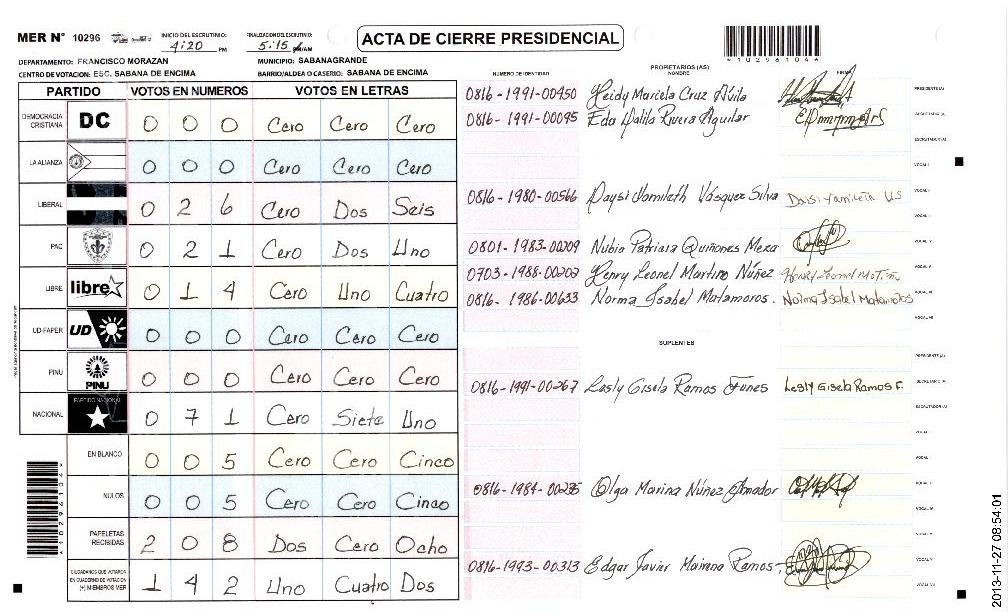 MER N° 10296
INICIO DEL ESCRUTINIO: 4:20 PM
FINALIZACION DEL ESCRUTINIO: 5:15 PM/AM
ACTA DE CIERRE PRESIDENCIAL
*10296104*
DEPARTAMENTO: FRANCISCO MORAZAN
MUNICIPIO: SABANAGRANDE
CENTRO DE VOTACION: ESC. SABANA DE ENCIMA
BARRIO/ALDEA O CASERIO: SABANA DE ENCIMA
PARTIDO VOTOS EN NUMEROS VOTOS EN LETRAS
DEMOCRACIA CRISTIANA DC 0 0 0 Cero Cero Cero
LA ALIANZA 0 0 0 Cero Cero Cero
LIBERAL 0 2 6 Cero Dos Seis
PAC 0 2 1 Cero Dos Uno
LIBRE libre 0 1 4 Cero Uno Cuatro
UD-FAPER UD 0 0 0 Cero Cero Cero
PINU PINU 0 0 0 Cero Cero Cero
NACIONAL PARTIDO NACIONAL 0 7 1 Cero Siete Uno
EN BLANCO 0 0 5 Cero Cero Cinco
NULOS 0 0 5 Cero Cero Cinco
PAPELETAS RECIBIDAS 2 0 8 Dos Cero Ocho
CIUDADANOS QUE VOTARON EN CUADERNO DE VOTACION (+) MIEMBROS MER 1 4 2 Uno Cuatro Dos
NUMERO DE IDENTIDAD
PROPIETARIOS (AS)
NOMBRE
FIRMA
0816-1991-00450 Heidy Mariela Cruz Ávila PRESIDENTE (A)
0816-1991-00095 Eda Dalila Rivera Aguilar SECRETARIO (A)
ESCRUTADOR (A)
VOCAL I
0816-1980-00566 Daysi Yamileth Vásquez Silva Daisi Yamileth V S
0801-1983-00209 Nubia Patricia Quiñones Meza
0703-1988-00202 Henry Leonel Martinez Núñez
0816-1986-00633 Norma Isabel Matamoros. Norma Isabel Matamoros
VOCAL VII
SUPLENTES
PRESIDENTE (A)
0816-1991-00267 Lesly Gisela Ramos Funes Lesly Gisela Ramos F. SECRETARIO (A)
ESCRUTADOR (A)
VOCAL I
0816-1984-00235 Olga Marina Núñez Amador
0816-1993-00313 Edgar Javier Mairena Ramos
2013-11-27 08:54:01